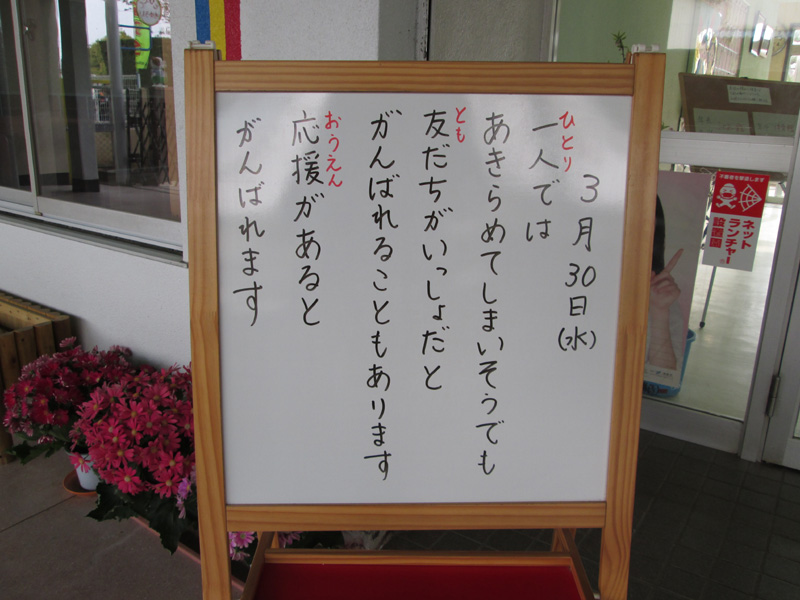 3月30日(水)
一人では
ひとり
あきらめてしまいそうでも
友だちがいっしょだと
とも
がんばれることもあります
応援があると
おうえん
がんばれます
不審者を撃退します
ネット
ランチャー
設置園